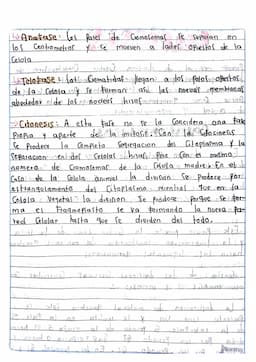 Anafase: los pares de Cromosomas se separan en
los Centrometros y se mueven a lados opuestos de la
Celula
Telofase: Las Cromatidas llegan a los polos opuestos
de la Celula y se forman así las nuevas membranas
alrededor de los nucleos hijos
Citonesis: A esta fase no se la Considera una fase
Propia y aparte de la mitosis. Con la Citocinesis
se Produce la Completa Segregacion del Citoplasma y la
Separacion en dos Celulas hijas, Pero Con el mismo
numero de Cromosomas de la Celula madre. En el
Caso de la Celula animal la division se Produce Por
estrangulamiento del Citoplasma mientras que en la
Celula Vegetal la division Se Produce porque se for-
ma el Fragmoplasto se va formando la nueva Pa-
red Celular hasta que se dividen del todo.